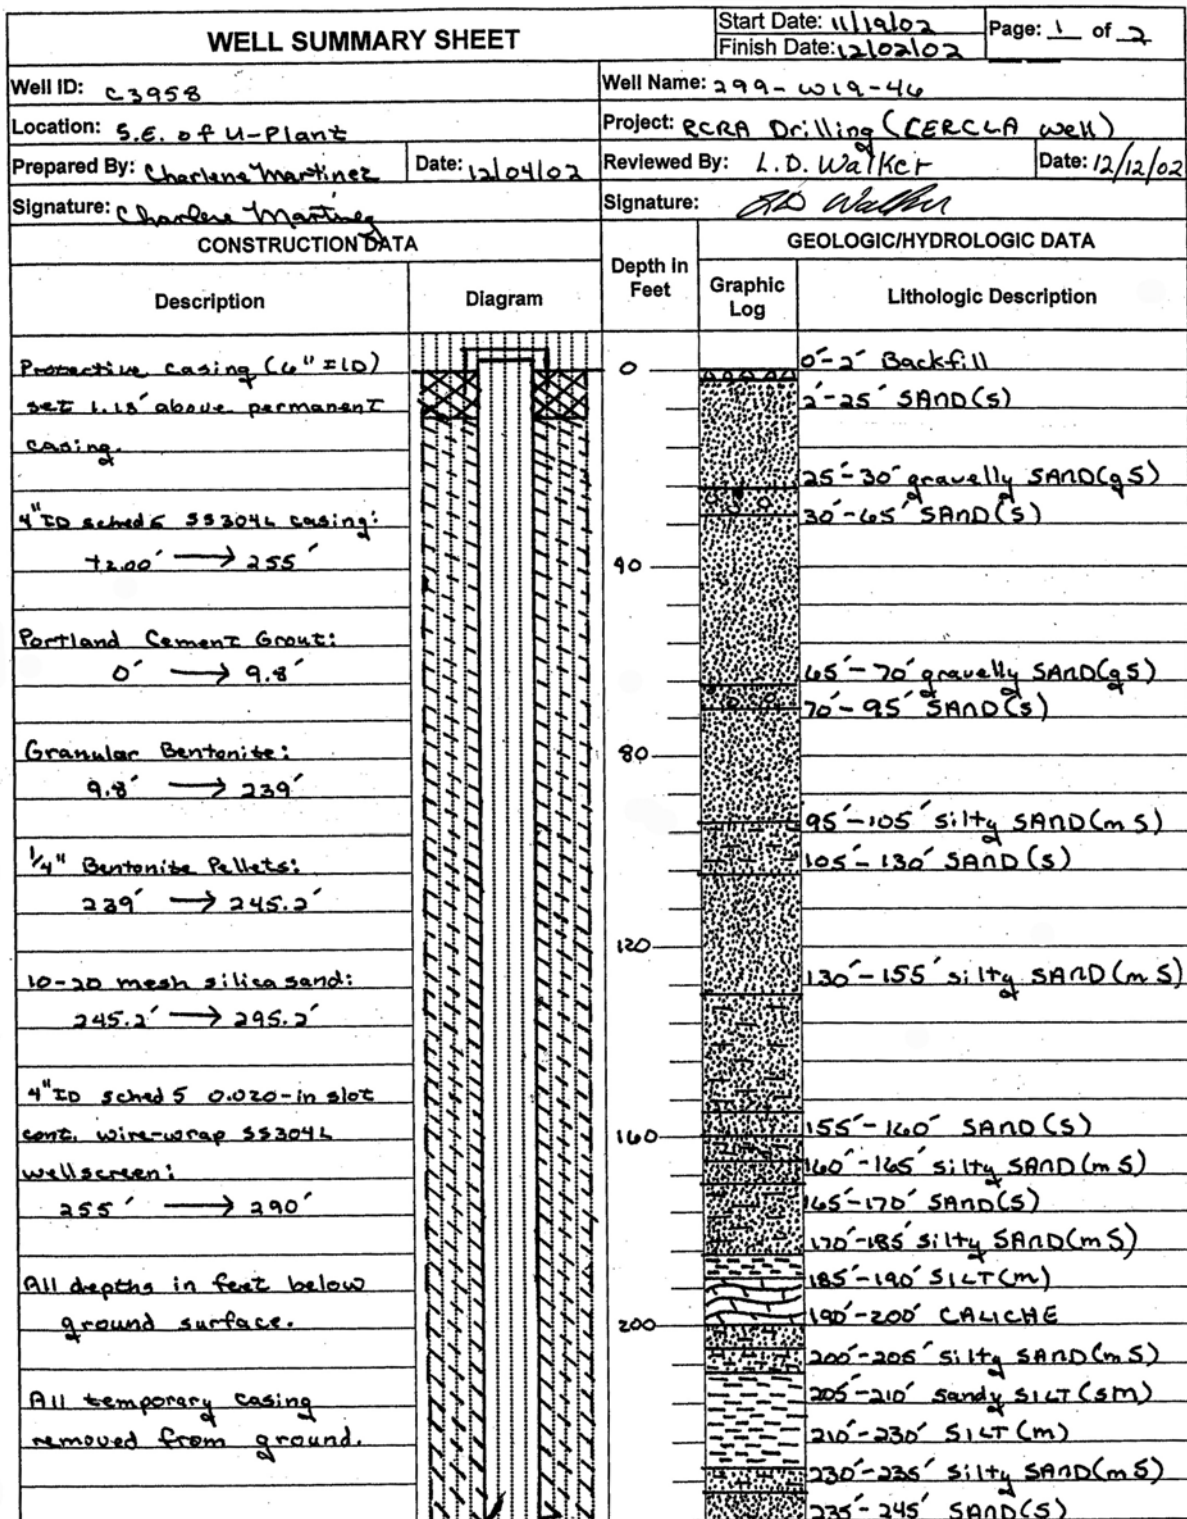 WELL SUMMARY SHEET
Start Date: 11/19/02
Finish Date: 12/02/02
Page: 1 of 2
Well ID: C3958
Well Name: 299-W19-46
Location: S.E. of U-Plant
Project: RCRA Drilling (CERCLA well)
Prepared By: Charlene Martinez
Date: 12/04/02
Reviewed By: L.D. Walker
Date: 12/12/02
Signature: Charlene Martinez
Signature: LD Walker
CONSTRUCTION DATA
GEOLOGIC/HYDROLOGIC DATA
Description
Diagram
Depth in
Feet
Graphic
Log
Lithologic Description
Protective casing (6" ID)
set 1.15' above permanent
casing.
4" ID sched 5 SS304L casing:
+2.00' → 255'
Portland Cement Grout:
0' → 9.8'
Granular Bentonite:
9.8' → 239'
1/4" Bentonite Pellets:
239' → 245.2'
10-20 mesh silica sand:
245.2' → 295.2'
4" ID sched 5 0.020-in slot
cont. wire-wrap SS304L
wellscreen:
255' → 290'
All depths in feet below
ground surface.
All temporary casing
removed from ground.
0
40
80
120
160
200
0'-2' Backfill
2'-25' SAND (S)
25'-30' gravelly SAND (gS)
30'-65' SAND (S)
65'-70' gravelly SAND (gS)
70'-95' SAND (S)
95'-105' silty SAND (mS)
105'-130' SAND (S)
130'-155' silty SAND (mS)
155'-160' SAND (S)
160'-165' silty SAND (mS)
165'-170' SAND (S)
170'-185' silty SAND (mS)
185'-190' SILT (m)
190'-200' CALICHE
200'-205' silty SAND (mS)
205'-210' sandy SILT (sm)
210'-230' SILT (m)
230'-235' silty SAND (mS)
235'-245' SAND (S)